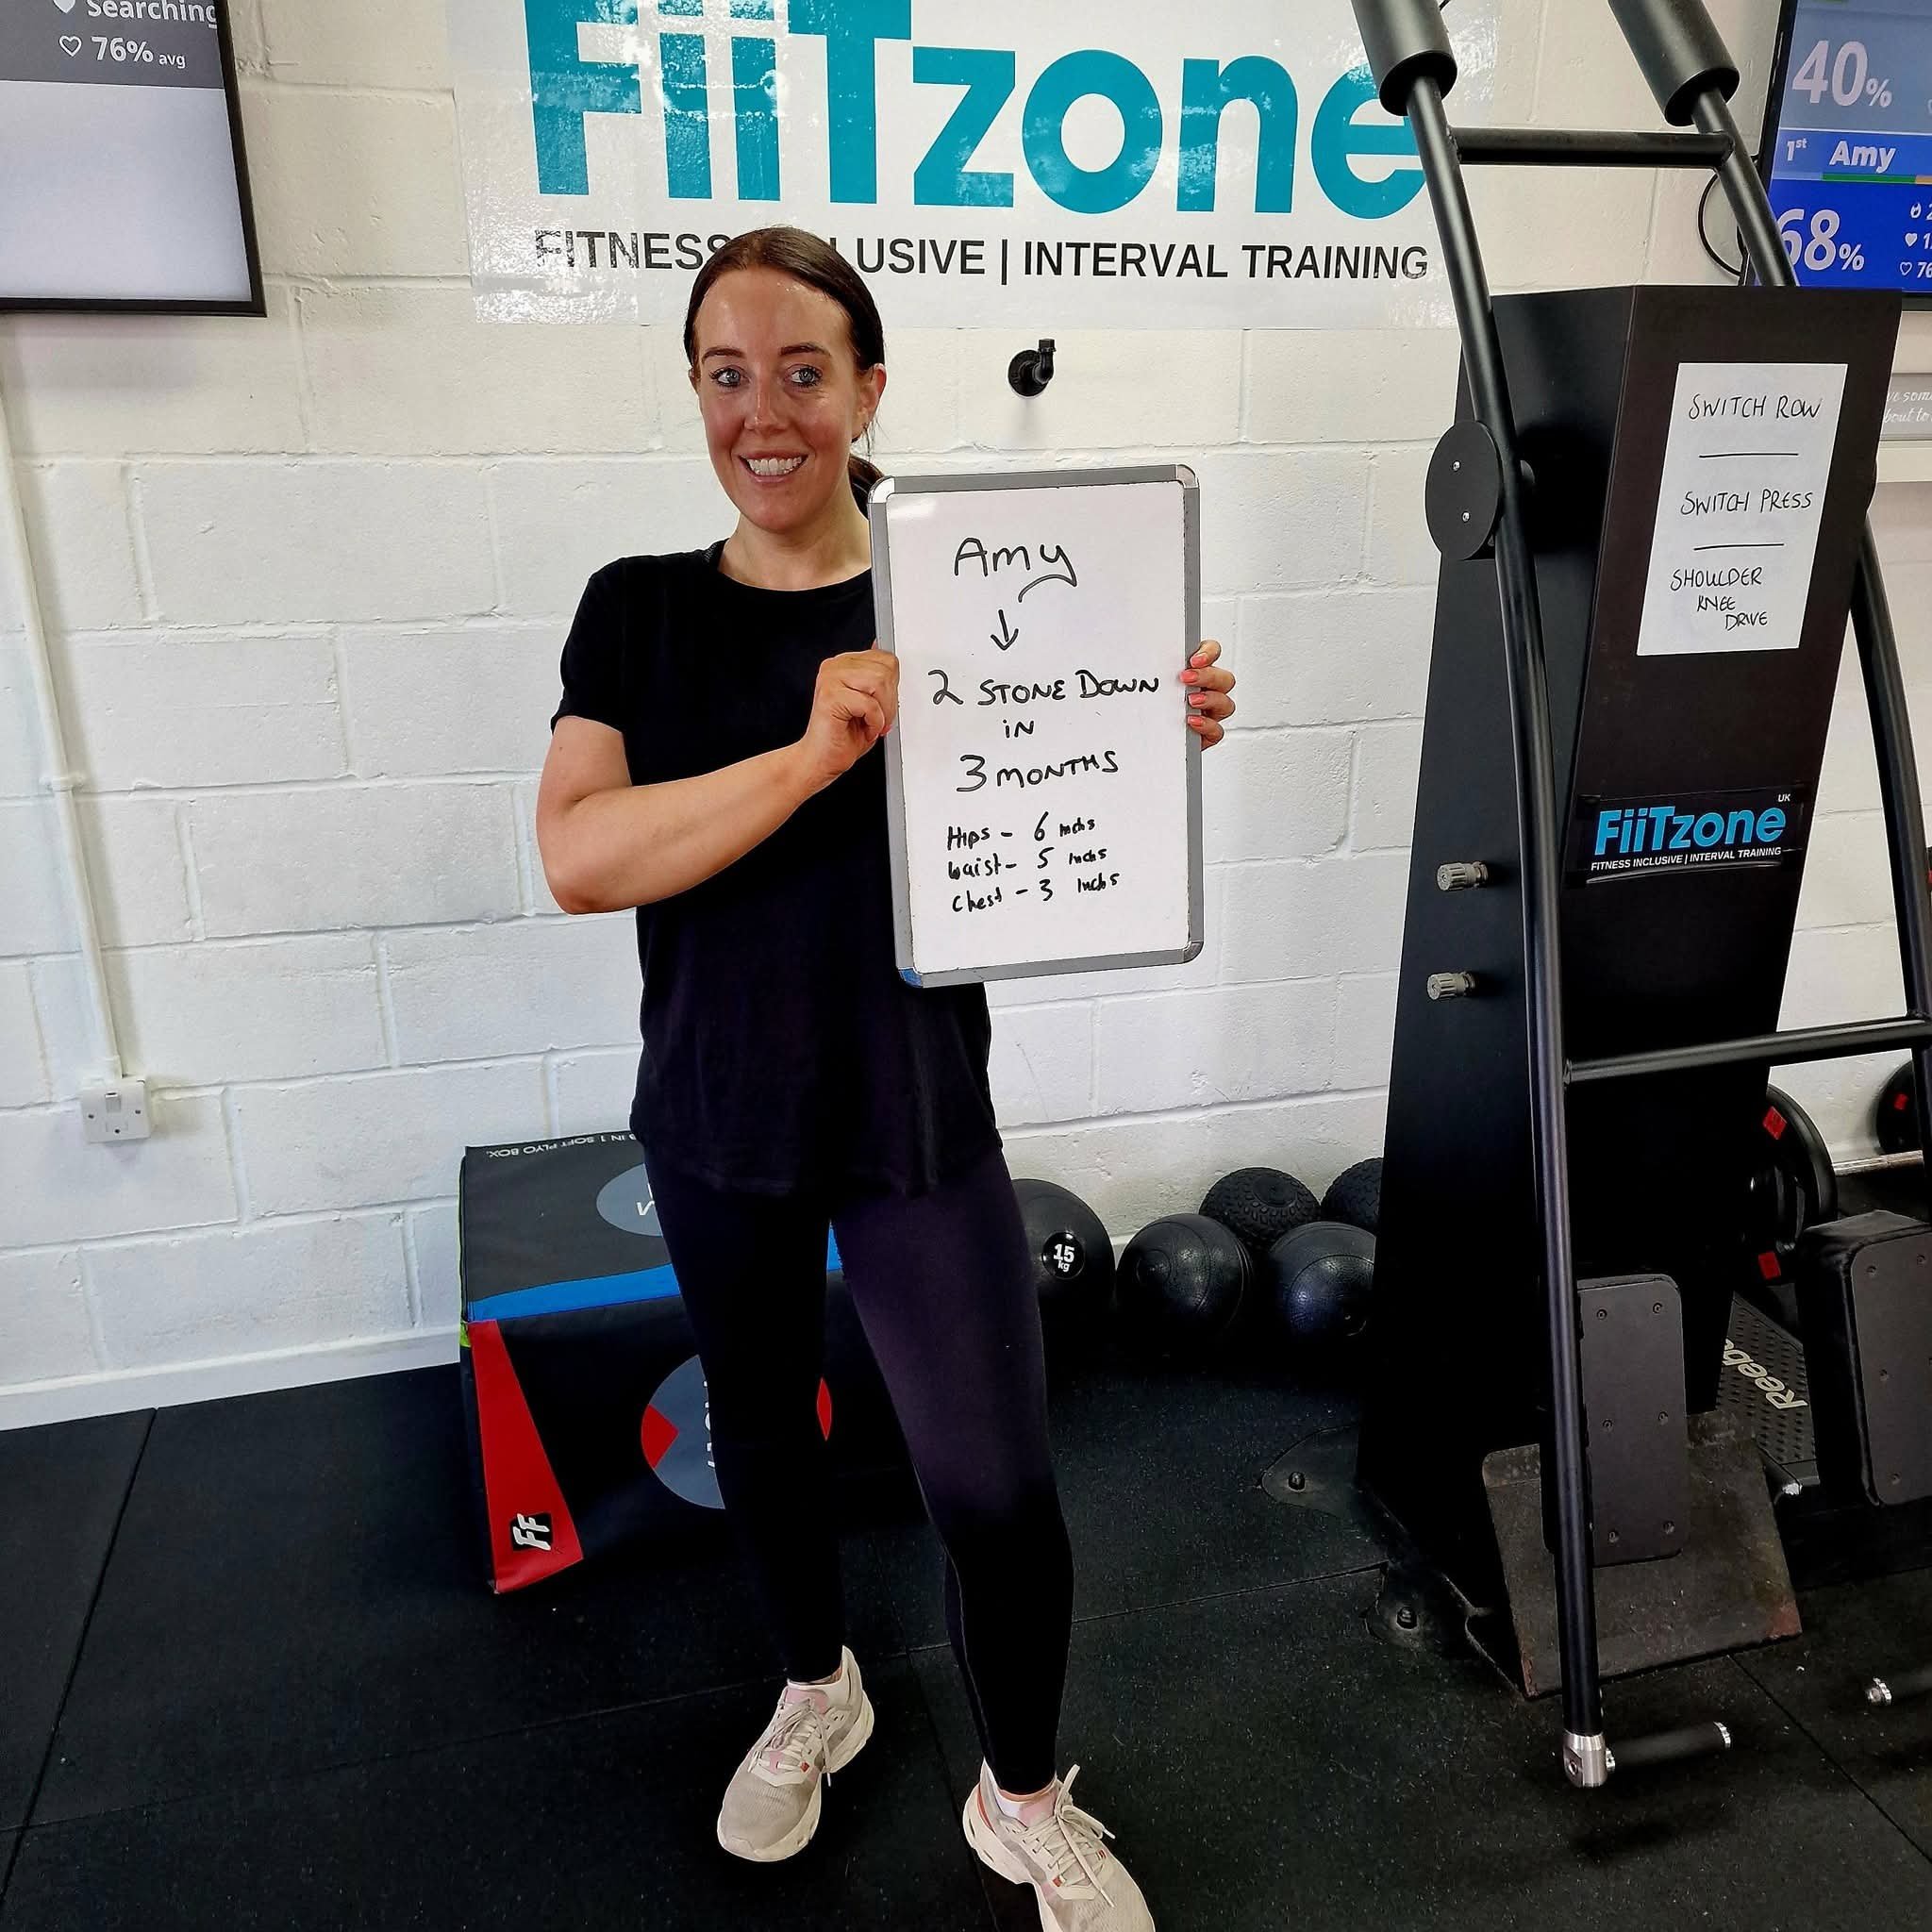 Searching
76% avg
FiiTzone
FITNESS
LUSIVE | INTERVAL TRAINING
40%
1st Amy
68%
Amy
↓
2 STONE DOWN
IN
3 MONTHS
Hips - 6 Inchs
Waist - 5 Inchs
Chest - 3 Inchs
SWITCH ROW
SWITCH PRESS
SHOULDER
KNEE
DRIVE
FiiTzone UK
FITNESS INCLUSIVE | INTERVAL TRAINING
3 IN 1 SOFT PLYO BOX
15
kg
FF